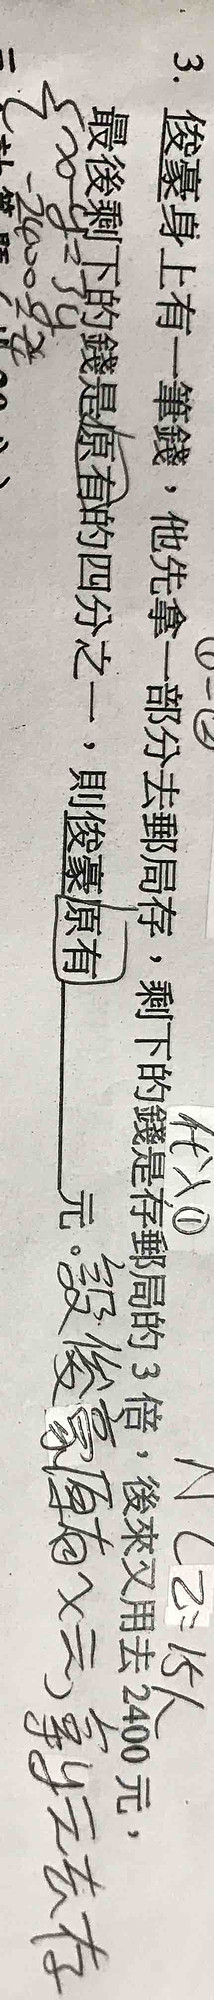 3. 俊豪身上有一筆錢，他先拿一部分去郵局存，剩下的錢是存郵局的 3 倍，後來又用去 2400 元，
最後剩下的錢是原有的四分之一，則俊豪原有＿＿＿＿元。設俊豪原有x元，拿y元去存
代入①
乙=15人
{x-y=3y